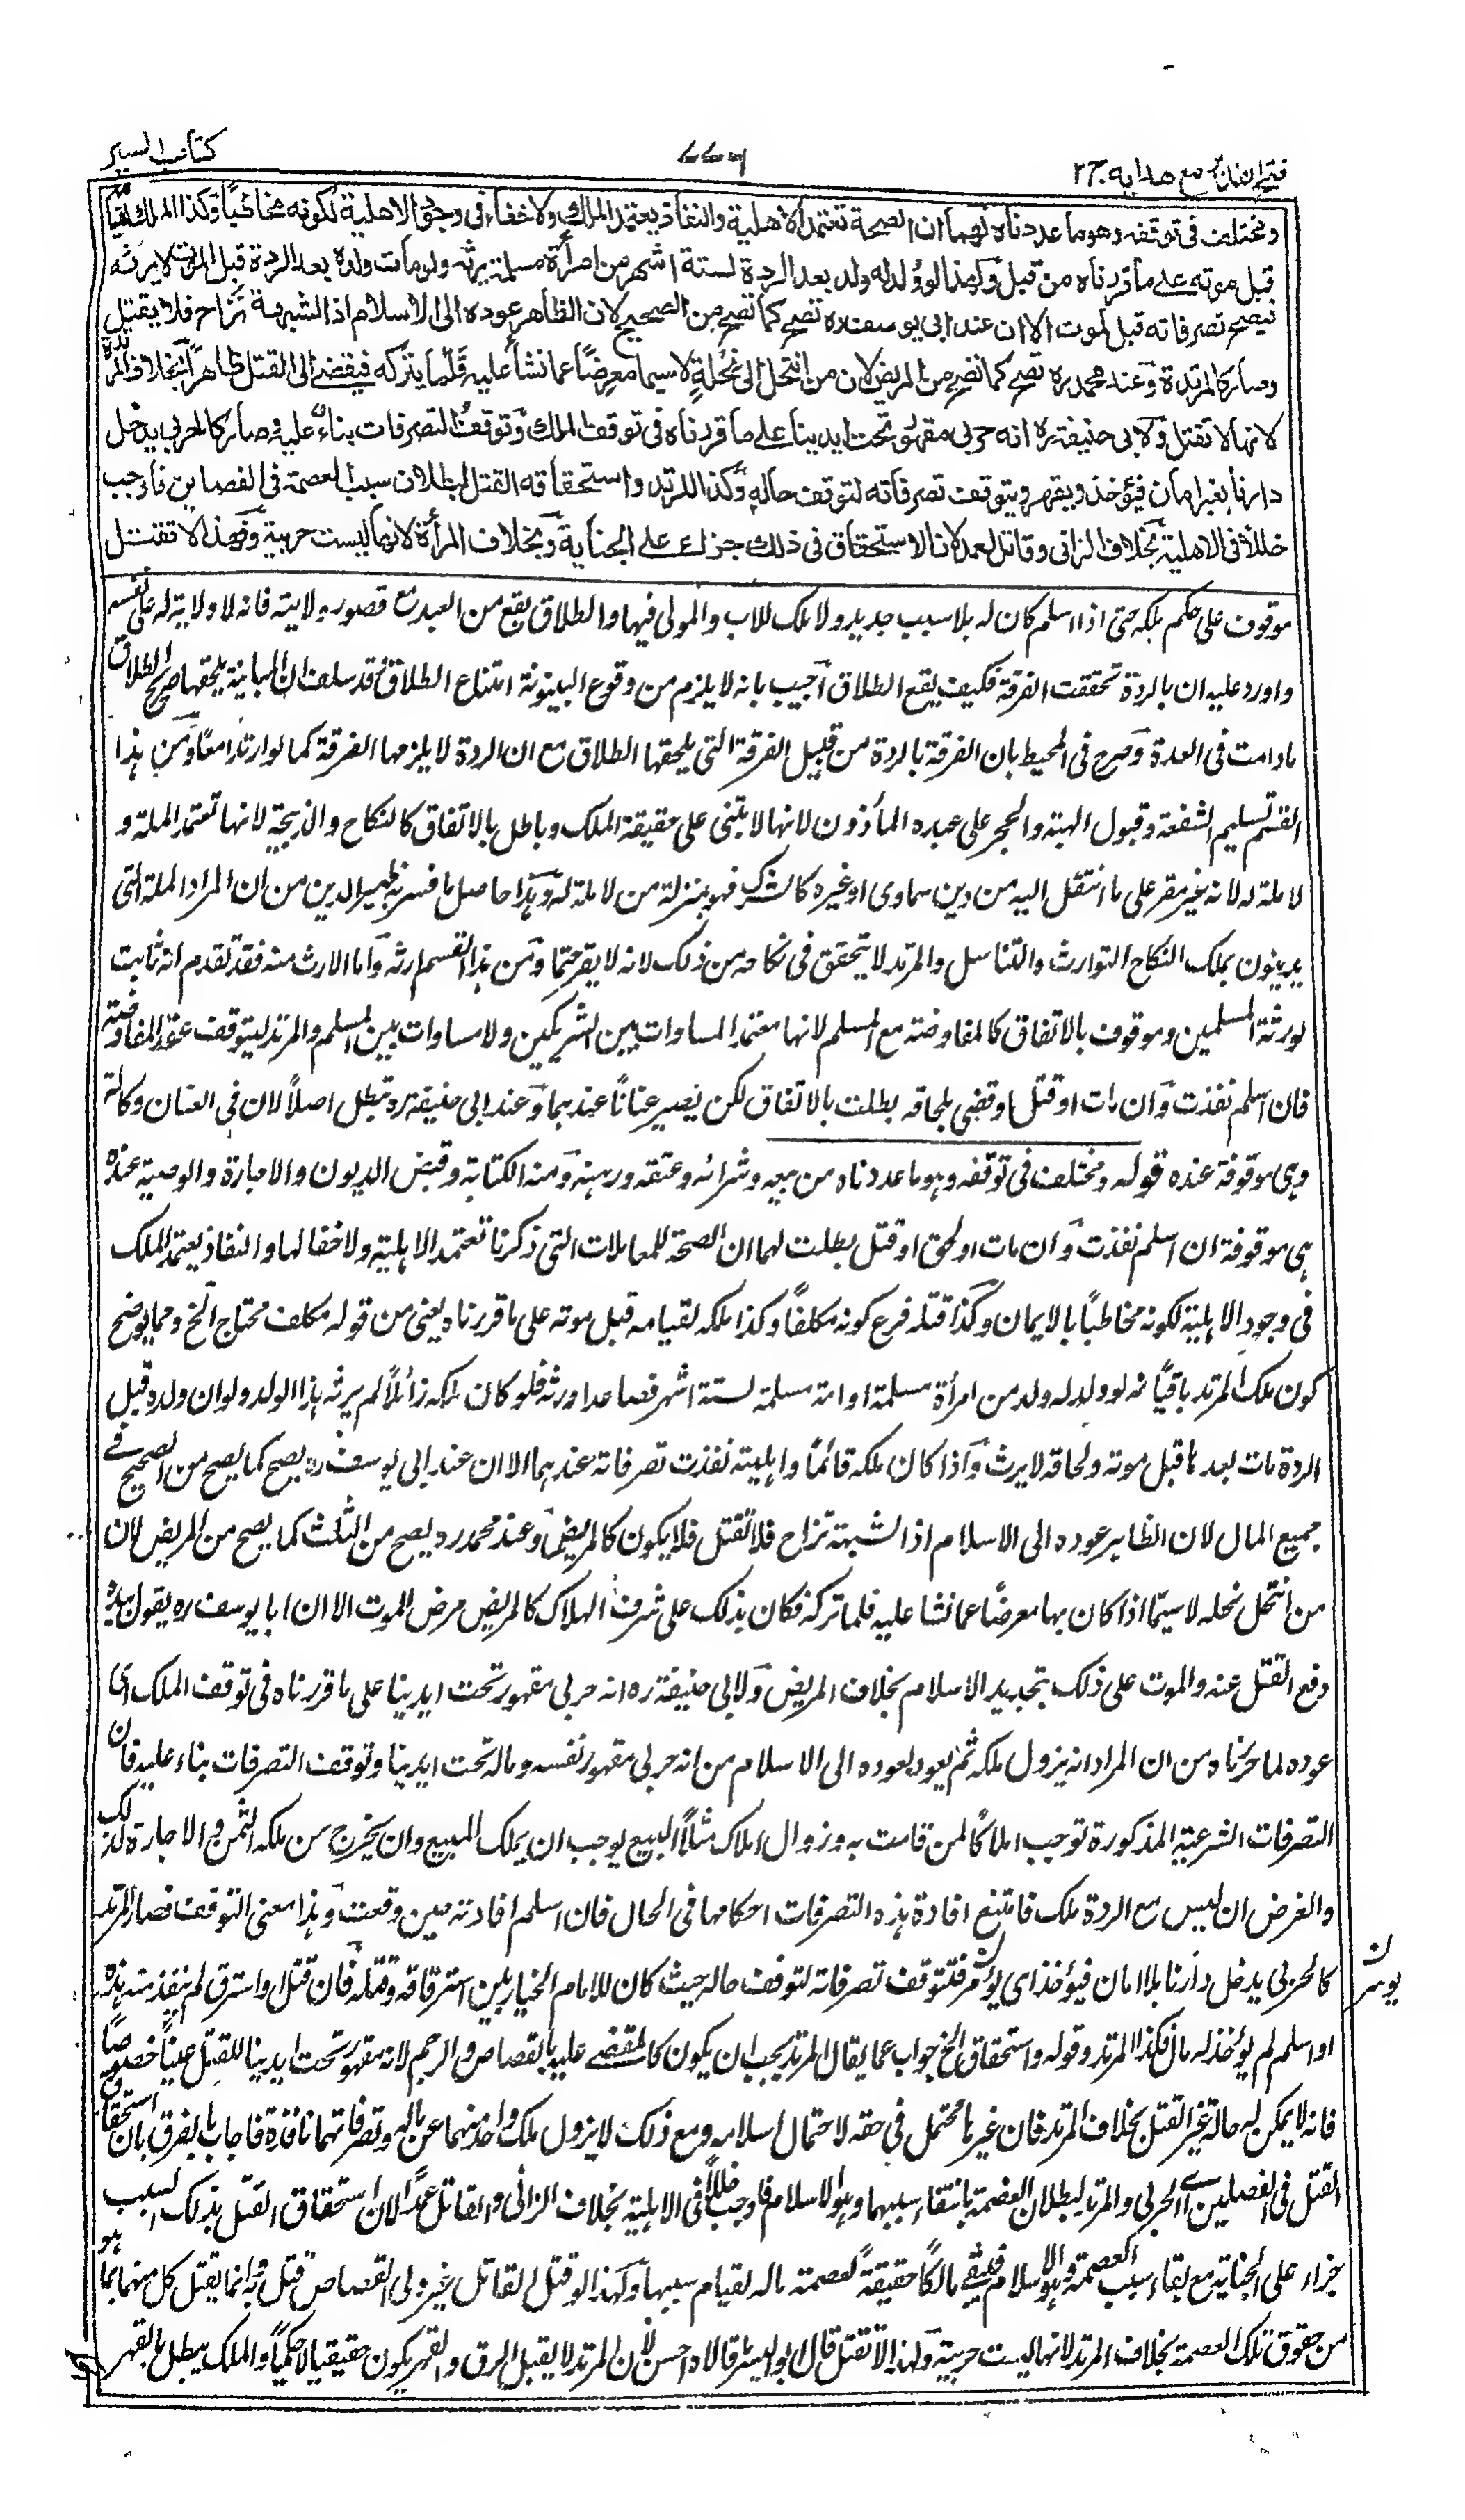 فتح القدير مع هدايه ج ٢
٧٧٦
كتاب السير
ومختلف في توقفه وهو ما عددناه لهما ان الصحة تعتمد الاهلية والنفاذ يعتمد الملك ولا خفاء في وجود الاهلية لكونه مخاطبا وكذا الملك لقيامه
قبل موته على ما قررناه من قبل ولهذا لو ولد له ولد بعد الردة لستة اشهر من امرأة مسلمة يرثه ولو مات ولده بعد الردة قبل الموت لا يرثه
فيصح تصرفاته قبل الموت الا ان عند ابي يوسف ره تصح كما تصح من الصحيح لان الظاهر عوده الى الاسلام اذ الشبهة تزاح فلا يقتل
وصار كالمرتدة وعند محمد ره تصح كما تصح من المريض لان من انتحل الى نحلة لا سيما معرضا عما نشأ عليه قلما يتركه فيفضى الى القتل ظاهرا بخلاف المرتدة
لانها لا تقتل ولابي حنيفة ره انه حربي مقهور تحت ايدينا على ما قررناه في توقف الملك وتوقف التصرفات بناء عليه وصار كالحربي يدخل
دارنا بغير امان فيؤخذ ويقهر ويتوقف تصرفاته لتوقف حاله وكذا المرتد واستحقاقه القتل لبطلان سبب العصمة في الفصلين فاوجب
خللا في الاهلية بخلاف الزاني وقاتل العمد لان الاستحقاق في ذلك جزاء على الجناية وبخلاف المرأة لانها ليست حربية ولهذا لا تقتل
موقوف على حكم ملكه حتى اذا اسلم كان له بلا سبب جديد ولا ملك للاب والمولى فيها والطلاق يقع من العبد مع قصور ولايته فانه لا ولاية له على نفسه
واورد عليه ان بالردة تحققت الفرقة فكيف يقع الطلاق اجيب بانه لا يلزم من وقوع البينونة امتناع الطلاق قد سلف ان المبانة يلحقها صريح الطلاق
ما دامت في العدة وصرح في المحيط بان الفرقة بالردة من قبيل الفرقة التي يلحقها الطلاق مع ان الردة لا يلزمها الفرقة كما لو ارتدا معا ومن هذا
القسم تسليم الشفعة وقبول الهبة والحجر على عبده المأذون لانها لا تبتنى على حقيقة الملك وباطل بالاتفاق كالنكاح والذبيحة لانها تعتمد الملة و
لا ملة له لانه غير مقر على ما انتقل اليه من دين سماوي او غيره كالشرك فهو بمنزلة من لا ملة له وهذا حاصل ما فسر به ظهير الدين من ان المراد الملة التي
يدينون بملك النكاح التوارث والتناسل والمرتد لا يتحقق في نكاحه من ذلك لانه لا يقر حتما ومن هذا القسم ارثه واما الارث منه فقد تقدم انه ثابت
لورثة المسلمين وموقوف بالاتفاق كالمفاوضة مع المسلم لانها تعتمد المساوات بين الشريكين ولا مساوات بين المسلم والمرتد ليتوقف عقد المفاوضة
فان اسلم نفذت وان مات او قتل او قضى بلحاقه بطلت بالاتفاق لكن يصير عنانا عندهما وعند ابي حنيفة ره تبطل اصلا لان في العنان وكالة
وهي موقوفة عنده قوله ومختلف في توقفه وهو ما عددناه من بيعه وشرائه وعتقه ورهنه ومنه الكتابة وقبض الديون والاجارة والوصية عنده
هي موقوفة ان اسلم نفذت وان مات او لحق او قتل بطلت لهما ان الصحة للمعاملات التي ذكرنا تعتمد الاهلية ولا خفا لها والنفاذ يعتمد الملك
في وجود الاهلية لكونه مخاطبا بالايمان وكذا قتله فرع كونه مكلفا وكذا ملكه لقيامه قبل موته على ما قررناه يعنى من قوله مكلف محتاج الخ ومما يوضح
كون ملك المرتد باقيا انه لو ولد له ولد من امرأة مسلمة او امة مسلمة لستة اشهر فصاعدا ورثه فلو كان ملكه زائلا لم يرثه هذا الولد ولو ان ولده قبل
الردة مات بعدها قبل موته ولحاقه لا يرث واذا كان ملكه قائما واهليته نفذت تصرفاته عندهما الا ان عند ابي يوسف ره يصح كما يصح من الصحيح في
جميع المال لان الظاهر عوده الى الاسلام اذ الشبهة تزاح فلا تقتل فلا يكون كالمريض وعند محمد ره يصح من الثلث كما يصح من المريض لان
من انتحل نحلة لا سيما اذا كان بها معرضا عما نشا عليه قلما تركه فكان بذلك على شرف الهلاك كالمريض مرض الموت الا ان ابا يوسف ره يقول بيده
دفع القتل عنه والموت على ذلك بتجديد الاسلام بخلاف المريض ولابي حنيفة ره انه حربي مقهور تحت ايدينا على ما قررناه في توقف الملك اى
عوده لما حررناه من ان المراد انه يزول ملكه ثم يعود بعوده الى الاسلام من انه حربي مقهور نفسه وماله تحت ايدينا وتوقف التصرفات بناء عليه فان
التصرفات الشرعية المذكورة توجب املاكا لمن قامت به وزوال املاك مثلا البيع يوجب ان يملك المبيع وان يخرج من ملكه الثمن والاجارة كذلك
والغرض ان ليس مع الردة ملك فامتنع افادة هذه التصرفات احكامها في الحال فان اسلم افادته حين وقعت وهذا معنى التوقف فصار المرتد
كالحربي يدخل دارنا بلا امان فيؤخذ اى يؤسر فتتوقف تصرفاته لتوقف حاله حيث كان للامام الخيار بين استرقاقه وقتله فان قتل او استرق لم ينفذ منه هذه
او اسلم لم يؤخذ له مال فكذا المرتد وقوله واستحقاق الخ جواب عما يقال المرتد يجب ان يكون كالمقضى عليه بالقصاص والرجم لانه مقهور تحت ايدينا للقتل عينا خصوصا
فانه لا يمكن له حالة غير القتل بخلاف المرتد فان غير ما محتمل في حقه لاحتمال اسلامه ومع ذلك لا يزول ملك واحد منهما عن ماله وتصرفاتهما نافذة فاجاب بالفرق بان استحقاق
القتل في الفصلين اى الحربي والمرتد لبطلان العصمة بانتفاء سببها وهو الاسلام فاوجب خللا في الاهلية بخلاف الزاني والقاتل عمدا لان استحقاق القتل بذلك السبب
جزاء على الجناية مع بقاء سبب العصمة وهو الاسلام فيبقى مالكا حقيقة لعصمة ماله لقيام سببها ولهذا لو قتل القاتل غير ولى القصاص قتل به انما يقتل كل منهما بما هو
من حقوق تلك العصمة بخلاف المرتدة لانها ليست حربية ولهذا لا تقتل قال ابو اليسر ما قالاه احسن لان المرتد لا يقبل الرق والقهر يكون حقيقيا لا حكميا والملك يبطل بالقهر